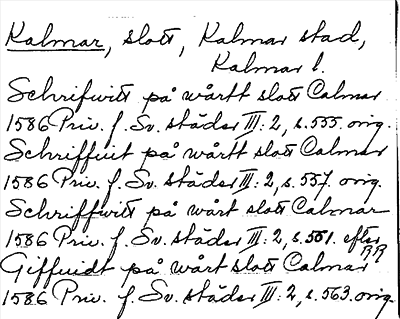 Kalmar, slott, Kalmar stad,
Kalmar l.
Schrifwitt på wårtt slott Calmar
1586 Priv. f. Sv. städer III: 2, s. 555. orig.
Schriffuit på wårtt slott Calmar
1586 Priv. f. Sv. städer III: 2, s. 557. orig.
Schriffwitt på wårt slott Calmar
1586 Priv. f. Sv. städer III: 2, s. 561. efter RR
Giffuidt på wårt slott Calmar
1586 Priv. f. Sv. städer III: 2, s. 563. orig.